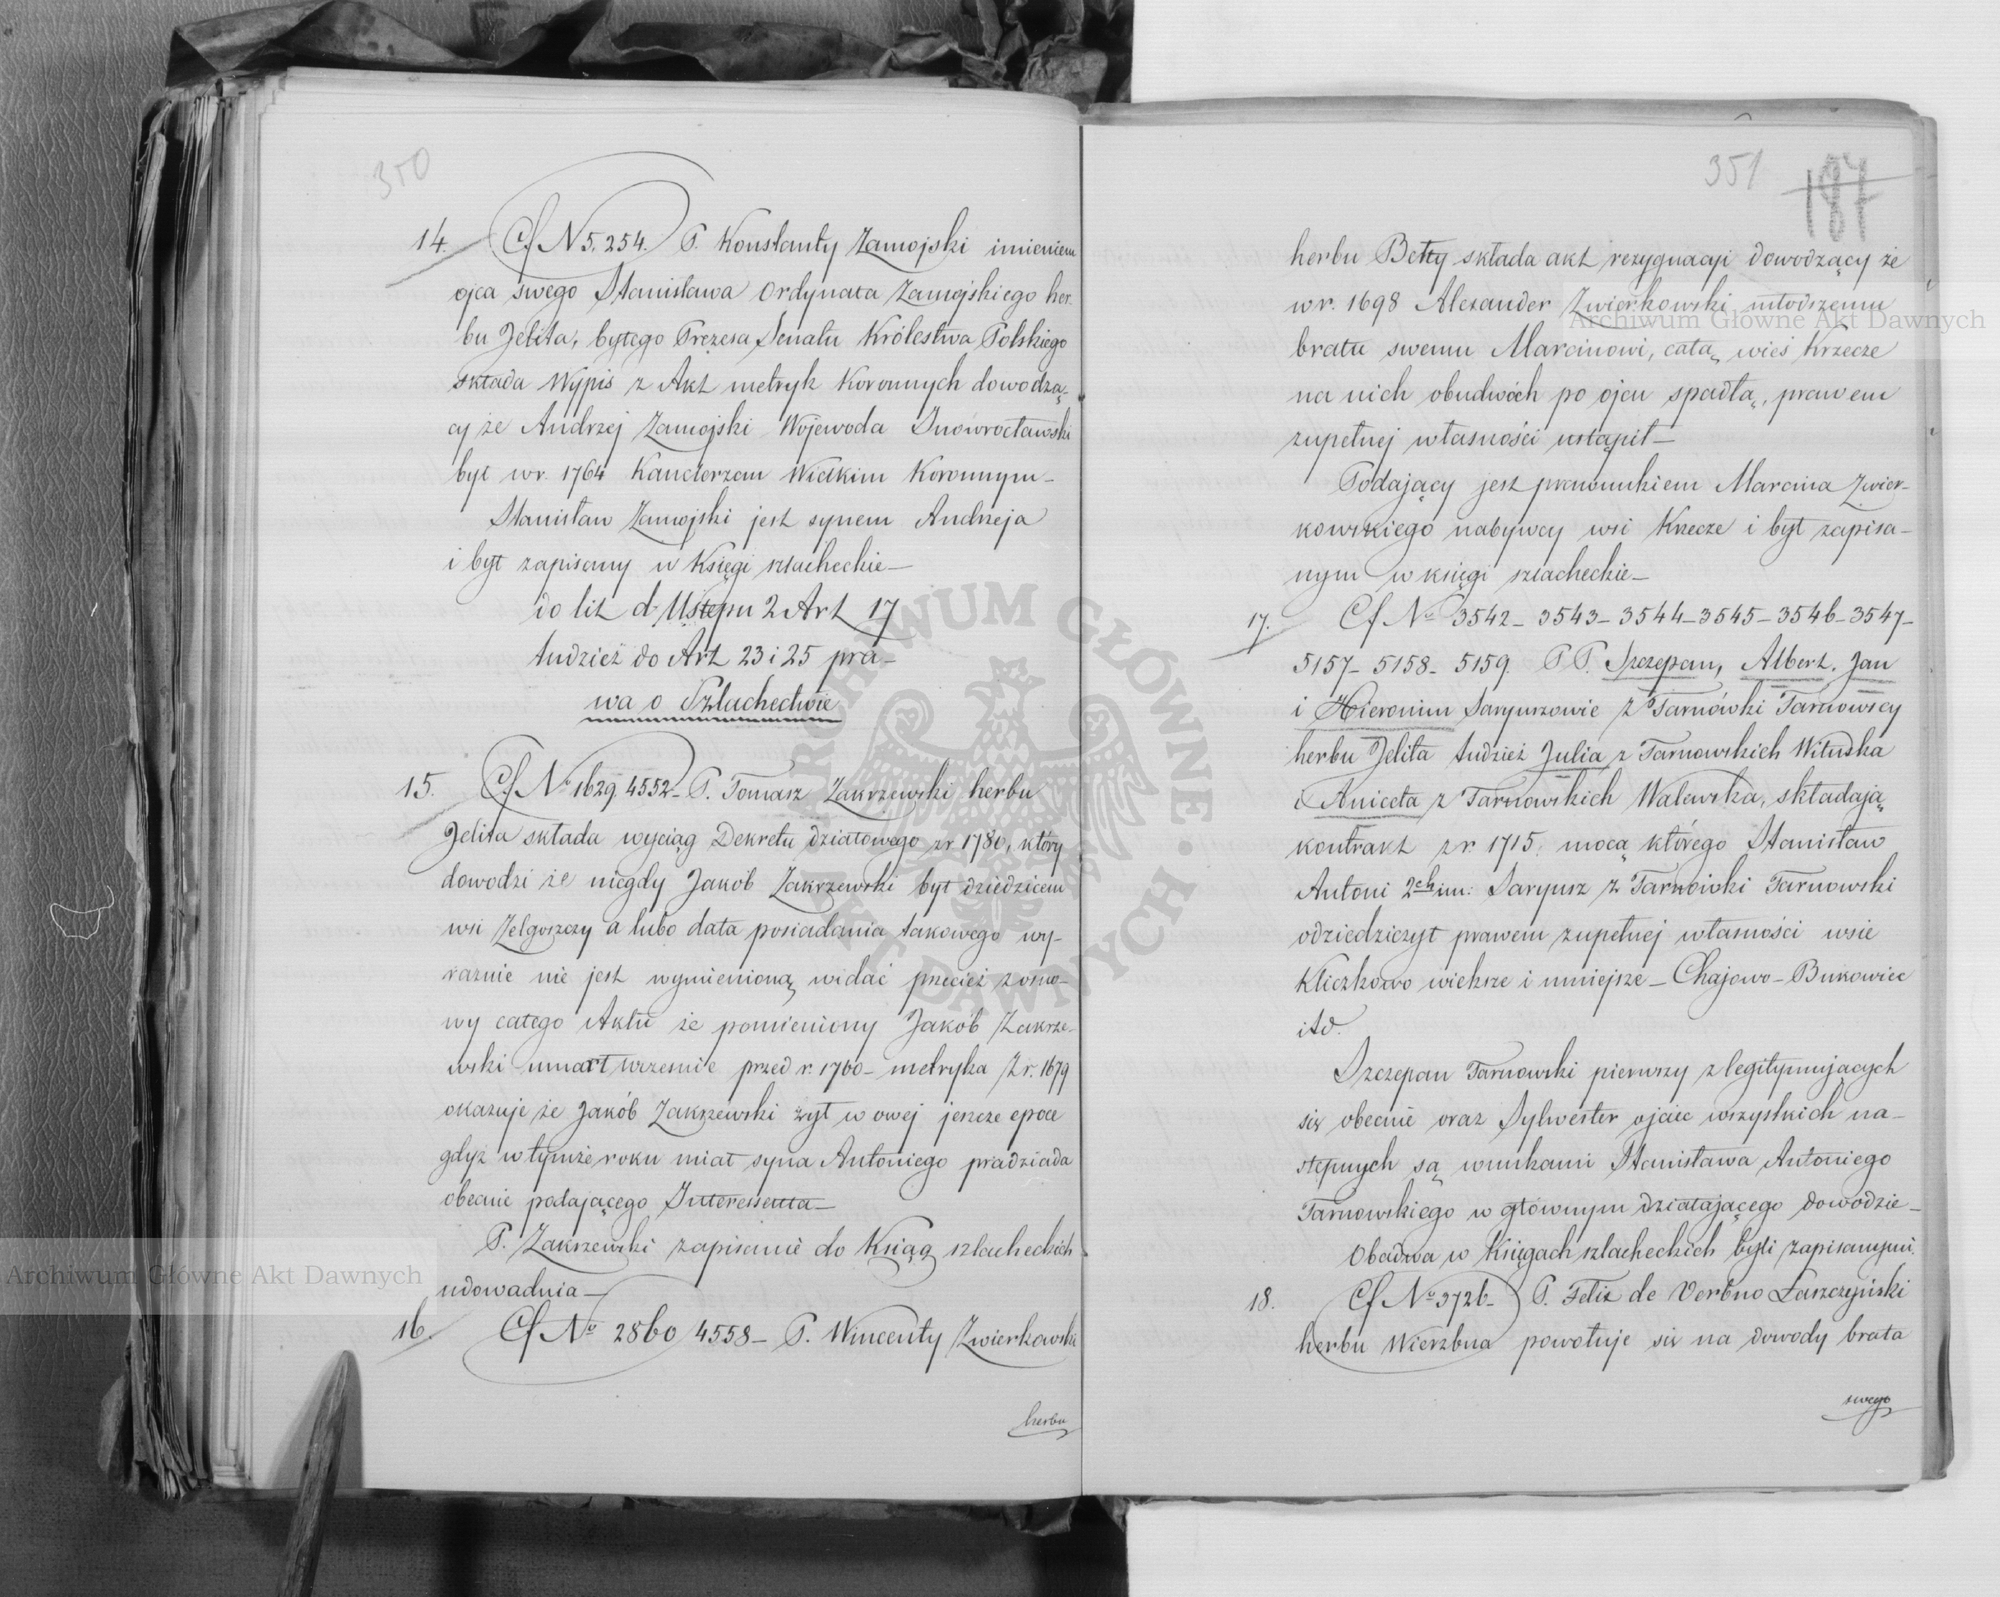 350
14. Cf N 5.254. P. Konstanty Zamojski imieniem
ojca swego Stanisława Ordynata Zamojskiego her-
bu Jelita, byłego Prezesa Senatu Królestwa Polskiego
składa Wypis z Akt metryk Koronnych dowodzą-
cy że Andrzej Zamojski Wojewoda Inowrocławski
był w r. 1764 Kanclerzem Wielkim Koronnym –
Stanisław Zamojski jest synem Andrzeja
i był zapisany w Księgi szlacheckie –
do lit d. Ustępu 2 Art 17
tudzież do Art 23 i 25 pra-
wa o Szlachectwie
15. Cf Nº 1629 4552 – P. Tomasz Zakrzewski herbu
Jelita składa wyciąg Dekretu działowego z r 1780, który
dowodzi że niegdy Jakób Zakrzewski był dziedzicem
wsi Zelgoszczy a lubo data posiadania takowego wy-
raźnie nie jest wymienioną widać przecież z osno-
wy całego Aktu że pomieniony Jakób Zakrze-
wski umarł wcześnie przed r. 1760 – metryka Z r. 1679
okazuje że Jakób Zakrzewski żył w owej jeszcze epoce
gdyż w tymże roku miał syna Antoniego pradziada
obecnie podającego Interessenta –
P. Zakrzewski zapisanie do Ksiąg szlacheckich
udowadnia –
16. Cf Nº 2860 4558 – P. Wincenty Zwierkowski
herbu
351 187
herbu Bełty składa akt rezygnacji dowodzący że
w r. 1698 Alexander Zwierkowski młodszemu
bratu swemu Marcinowi, całą wieś Krzecze
na nich obudwóch po ojcu spadłą, prawem
zupełnej własności ustąpił –
Podający jest prawnukiem Marcina Zwier-
kowskiego nabywcy wsi Krzecze i był zapisa-
nym w księgi szlacheckie –
17. Cf Nº 3542 – 3543 – 3544 – 3545 – 3546 – 3547 –
5157 – 5158 – 5159. P P. Szczepan, Albert, Jan
i Hieronim Saryuszowie z Tarnówki Tarnowscy
herbu Jelita tudzież Julia z Tarnowskich Wituska
i Aniceta z Tarnowskich Walewska, składają
kontrakt z r. 1715, mocą którego Stanisław
Antoni 2ch im: Saryusz z Tarnówki Tarnowski
odziedziczył prawem zupełnej własności wsie
Kliczkowo wieksze i mniejsze – Chajewo – Bukowiec
itd.
Szczepan Tarnowski pierwszy z legitymujących
się obecnie oraz Sylwester ojciec wszystkich na-
stępnych są wnukami Stanisława Antoniego
Tarnowskiego w głównym działającego dowodzie –
Obadwa w Księgach szlacheckich byli zapisanymi.
18. Cf Nº 3726 – P. Felix de Verbno Łaszczyński
herbu Wierzbna powołuje się na dowody brata
swego
Archiwum Główne Akt Dawnych
Archiwum Główne Akt Dawnych
ARCHIWUM GŁÓWNE AKT DAWNYCH